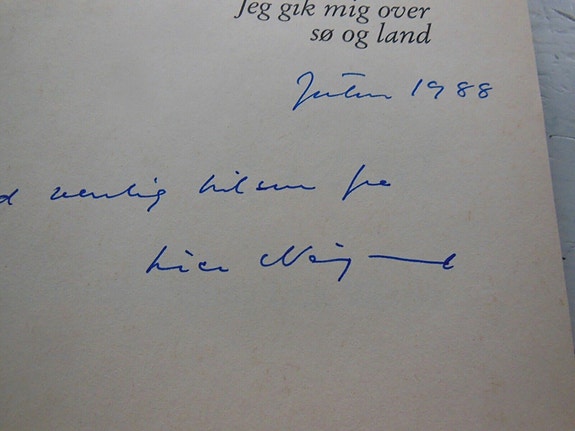 Jeg gik mig over
sø og land
Julen 1988
d venlig hilsen fra
Lise Nørgaard